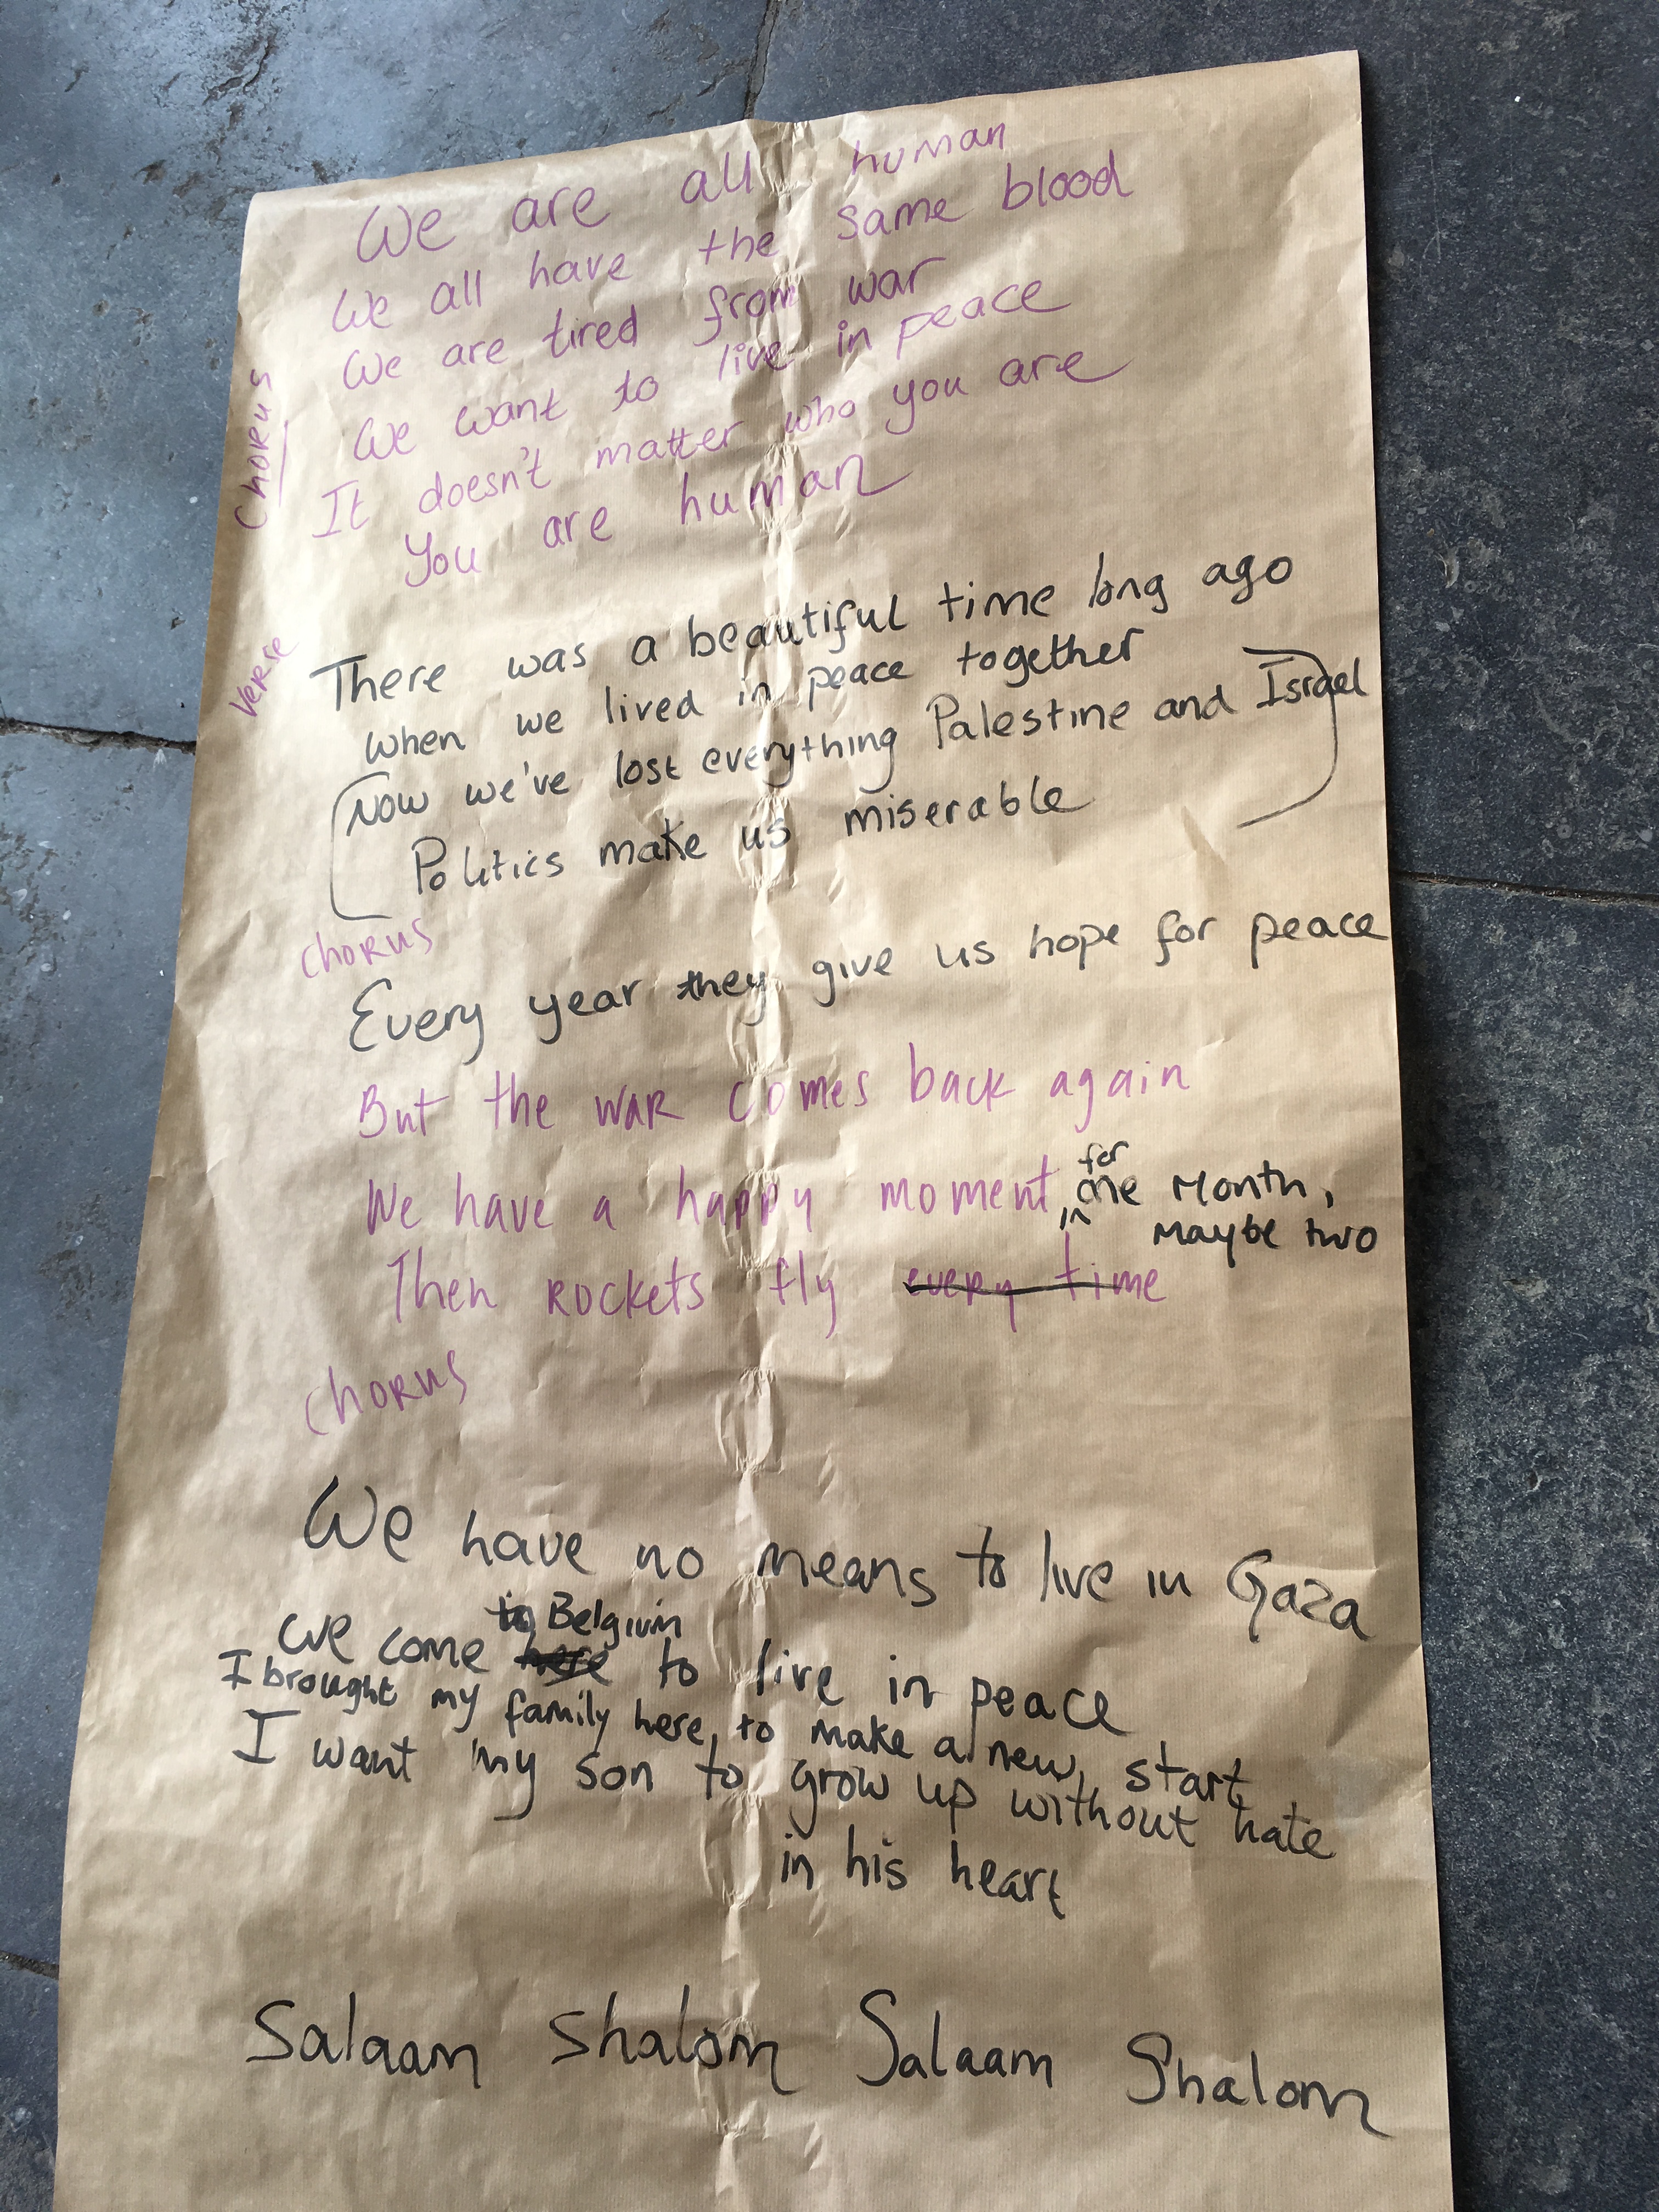 We are all human
We all have the same blood
We are tired from war
We want to live in peace
It doesn't matter who you are
You are human
Chorus
Verse
There was a beautiful time long ago
when we lived in peace together
Now we've lost everything Palestine and Israel
Politics make us miserable
Chorus
Every year they give us hope for peace
But the war comes back again
We have a happy moment for one month,
in
maybe two
Then rockets fly every time
Chorus
We have no means to live in Gaza
to Belgium
We come here to live in peace
I brought my family here, to make a new start
I want my son to grow up without hate
in his heart
Salaam Shalom Salaam Shalom